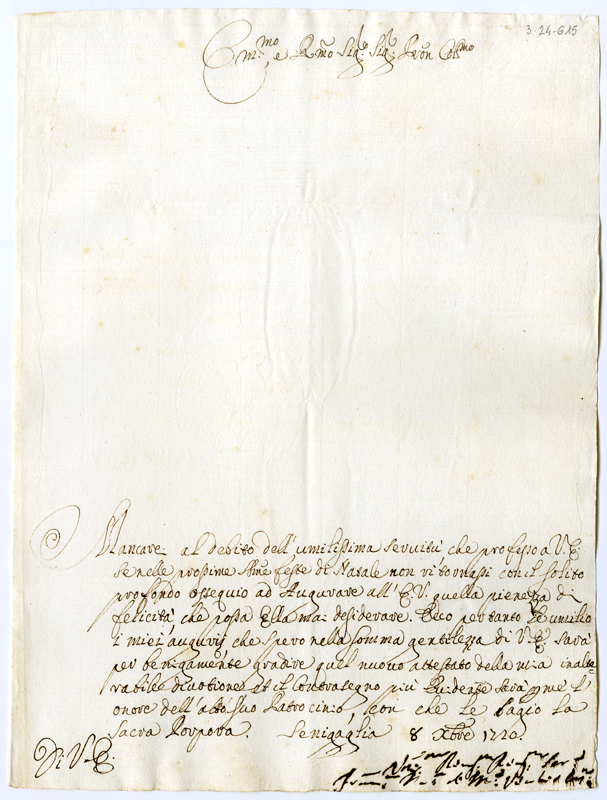 3-24-615
Em.mo e R.mo Sig.r Sig.r Pron Col.mo
Mancarei al debito dell'umilissima servitù, che professo a V. E.
se nelle prossime S.me feste di Natale non ritornassi con il solito
profondo ossequio ad Augurare all'E.V. quella pienezza di
felicità, che possa Ella mai desiderare. Ecco pertanto Le umilio
i miei augurij che spero nella somma gentilezza di V.E. sarà
per benigamente gradire quest nuovo attestato della mia inalte-
rabile divotione et il Contrasegno più Evidente sarà p me l'
onore dell'alto suo Patrocinio, con che le bagio la
Sacra Porpora. Senigaglia 8 Xbre 1720.
Di V. E.